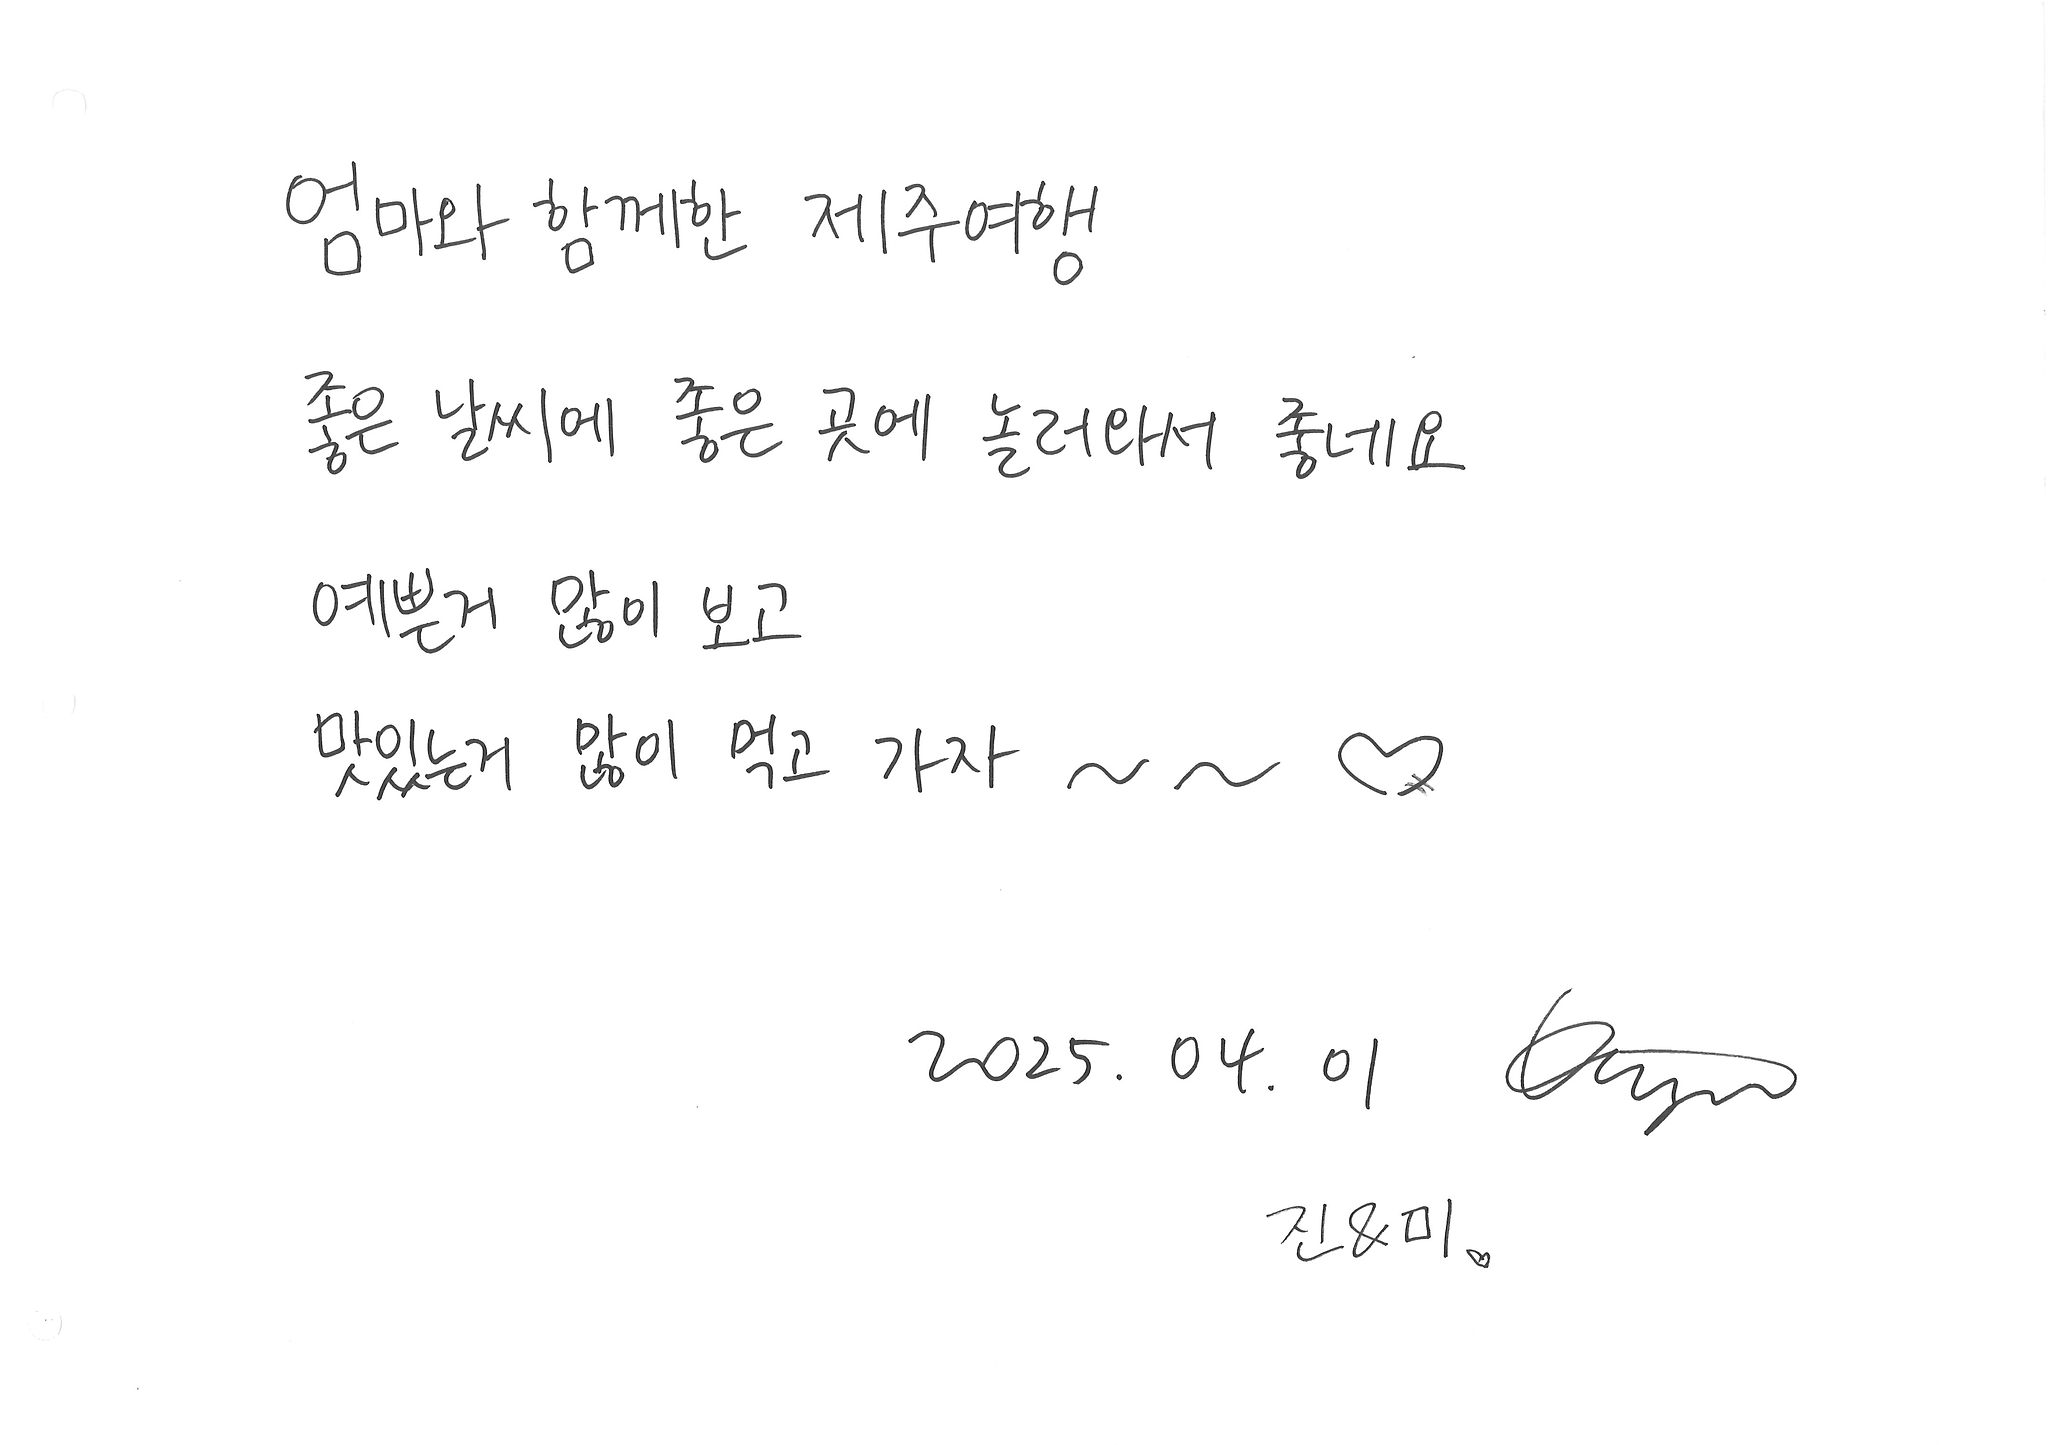 엄마와 함께한 제주여행
좋은 날씨에 좋은 곳에 놀러와서 좋네요
예쁜거 많이 보고
맛있는거 많이 먹고 가자 ~ ~ ♡
2025. 04. 01
진&미.